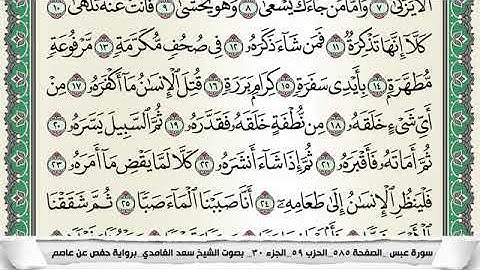 أَلَّا يَزَّكَّىٰ ٧ وَأَمَّا مَن جَآءَكَ يَسْعَىٰ ٨ وَهُوَ يَخْشَىٰ ٩ فَأَنتَ عَنْهُ تَلَهَّىٰ ١٠
كَلَّآ إِنَّهَا تَذْكِرَةٌ ١١ فَمَن شَآءَ ذَكَرَهُۥ ١٢ فِي صُحُفٍ مُّكَرَّمَةٍ ١٣ مَّرْفُوعَةٍ
مُّطَهَّرَةٍۭ ١٤ بِأَيْدِي سَفَرَةٍ ١٥ كِرَامٍۭ بَرَرَةٍ ١٦ قُتِلَ ٱلْإِنسَٰنُ مَآ أَكْفَرَهُۥ ١٧ مِنْ
أَيِّ شَيْءٍ خَلَقَهُۥ ١٨ مِن نُّطْفَةٍ خَلَقَهُۥ فَقَدَّرَهُۥ ١٩ ثُمَّ ٱلسَّبِيلَ يَسَّرَهُۥ ٢٠
ثُمَّ أَمَاتَهُۥ فَأَقْبَرَهُۥ ٢١ ثُمَّ إِذَا شَآءَ أَنشَرَهُۥ ٢٢ كَلَّا لَمَّا يَقْضِ مَآ أَمَرَهُۥ ٢٣
فَلْيَنظُرِ ٱلْإِنسَٰنُ إِلَىٰ طَعَامِهِۦٓ ٢٤ أَنَّا صَبَبْنَا ٱلْمَآءَ صَبًّا ٢٥ ثُمَّ شَقَقْنَا
سورة عبس _الصفحة ٥٨٥_ الحزب ٥٩_ الجزء ٣٠_ بصوت الشيخ سعد الغامدي_ برواية حفص عن عاصم